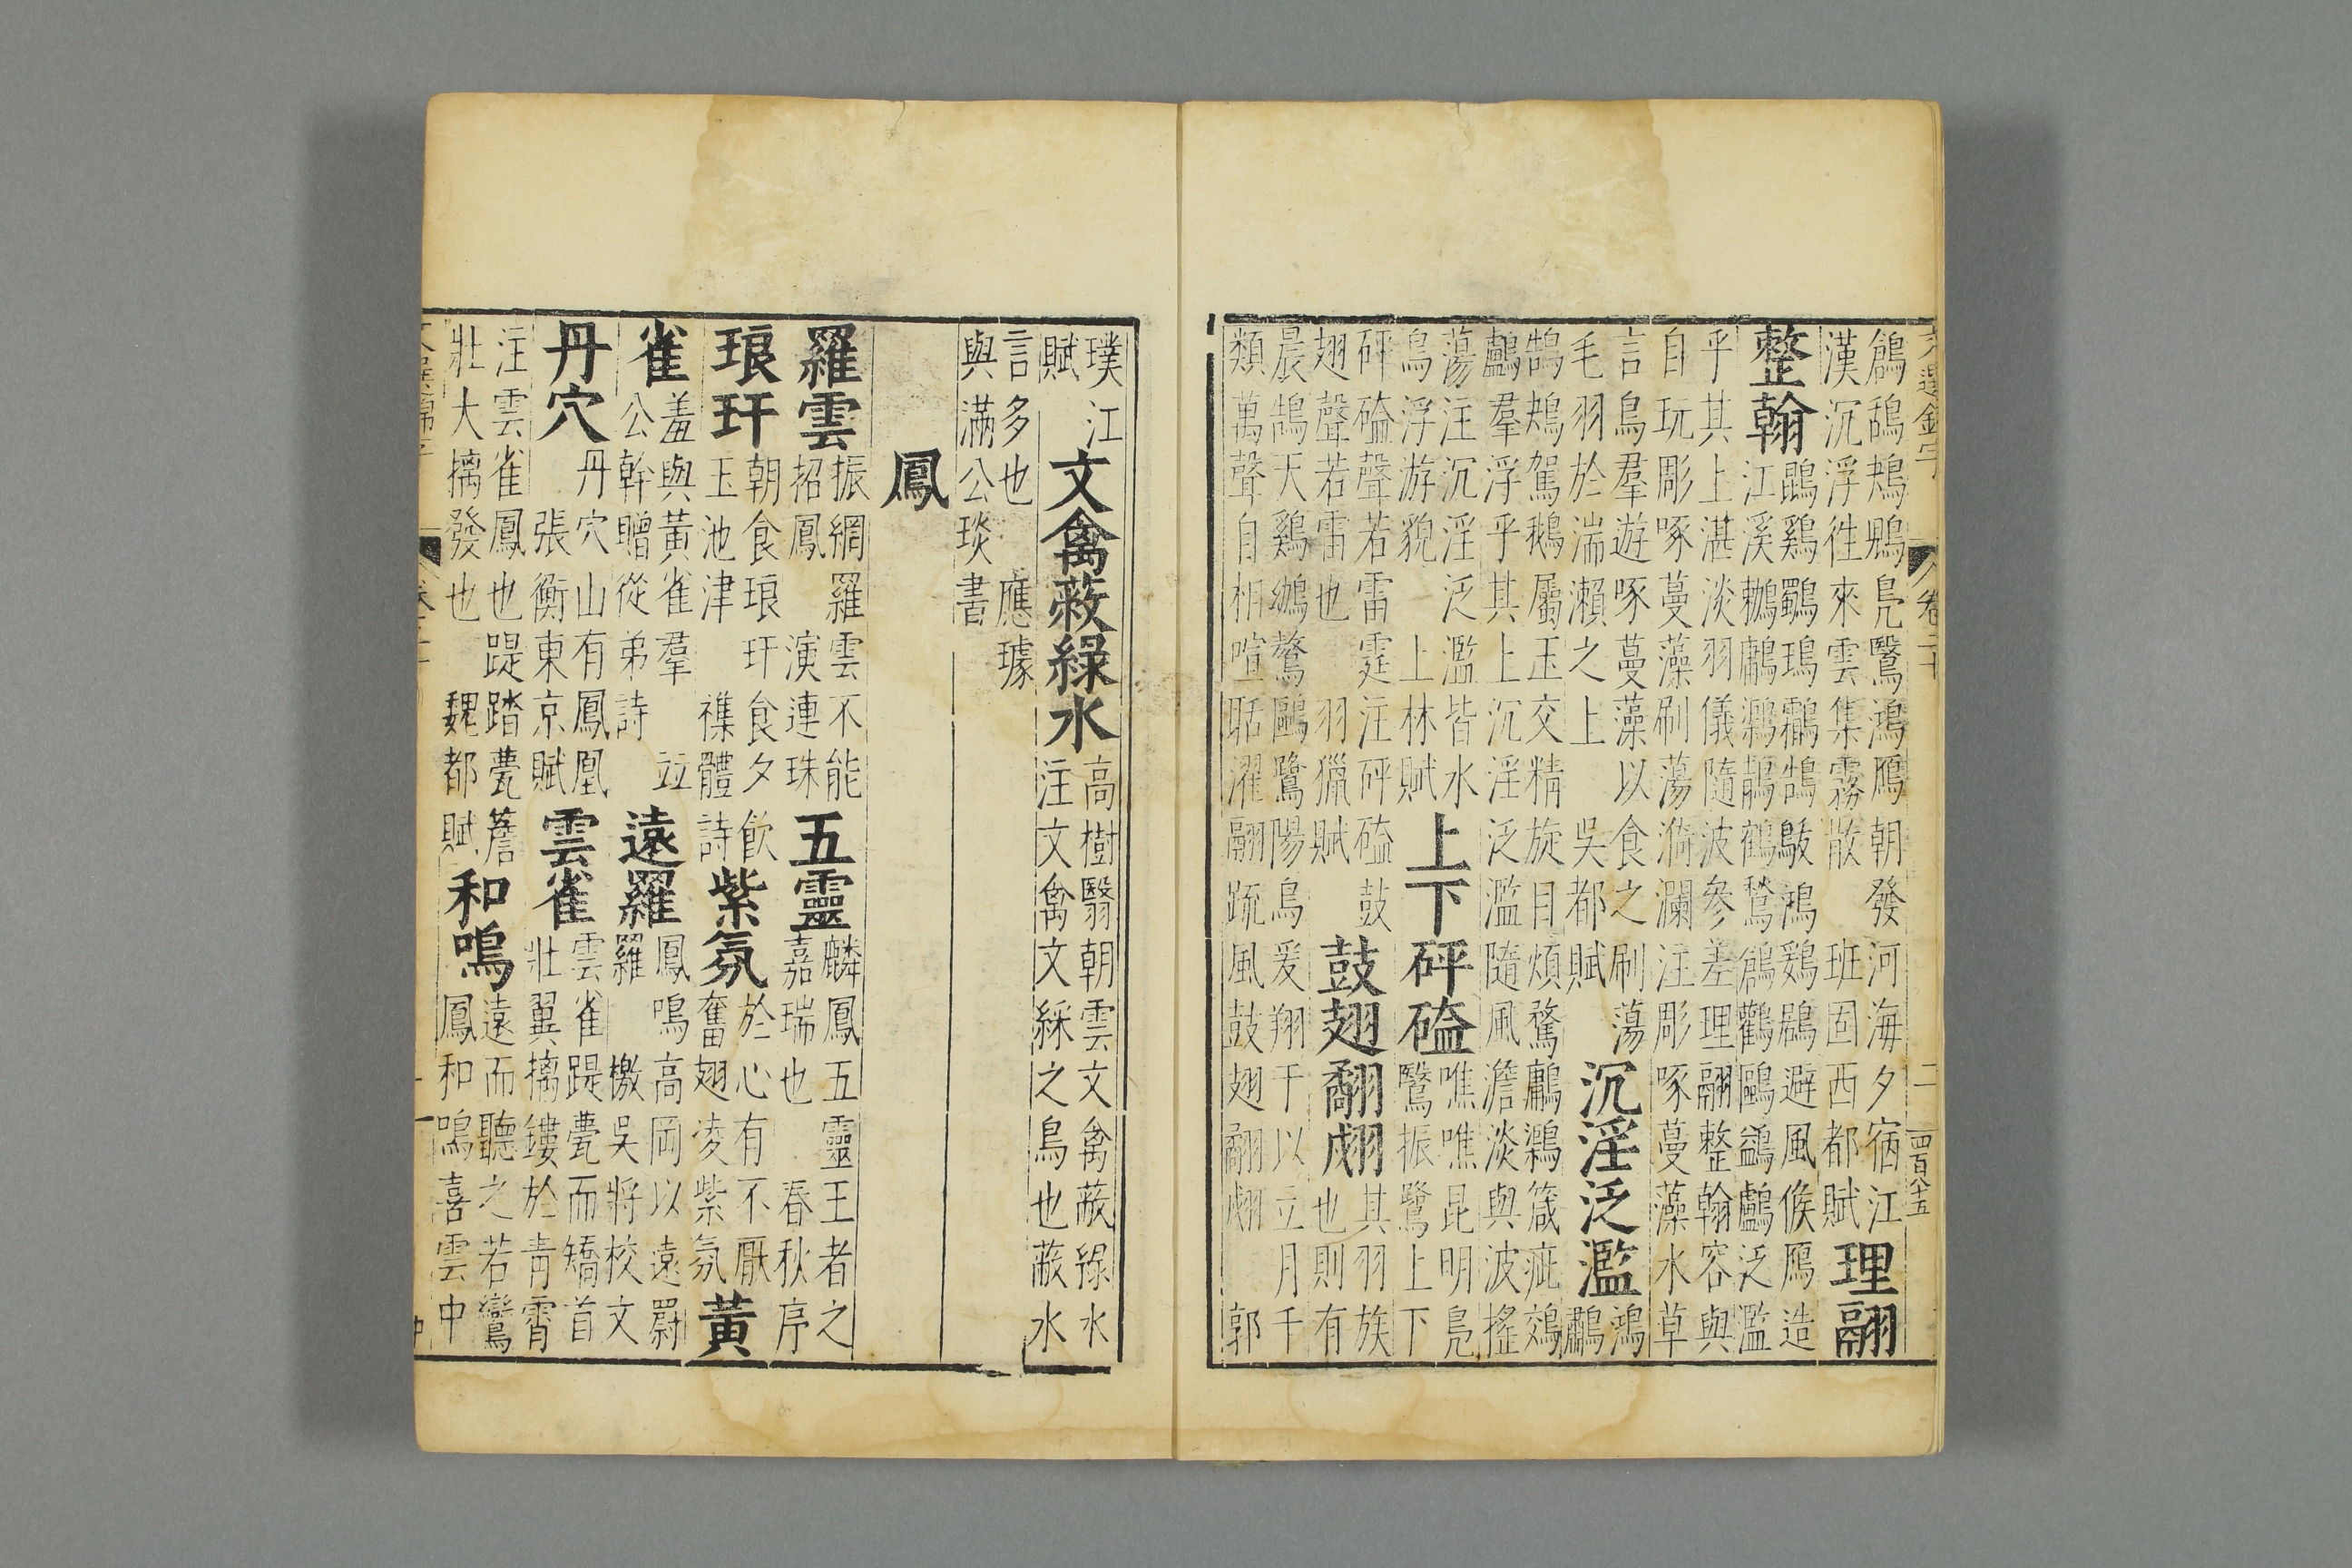 文選錦字 卷二十 二 四百八十五
鶬鴰鴇鶂鳧鷖鴻鴈朝發河海夕宿江
漢沉浮徃來雲集霧散 班固西都賦
理翮
整翰
鵾鷄鸀鳿鸘鵠鷔鴻鷄鶢避風候鴈造
江溪鷘鷛𪄶鶄鶴鶖鶬鸛鷗鷁鸕泛濫
乎其上湛淡羽儀隨波參差理翮整翰容與
自玩彫啄蔓藻刷蕩漪瀾注彫啄蔓藻水草
言鳥羣遊啄蔓藻以食之刷蕩
毛羽於湍瀨之上 吳都賦
沉淫泛濫
鴻
鷫
鵠鴇駕鵝屬玉交精旋目煩鶩鷛𪄶箴疵鵁
鸕羣浮乎其上沉淫泛濫隨風澹淡與波搖
蕩注沉淫泛濫皆水
鳥浮游貌 上林賦
上下砰磕
噍噍昆明鳧
鷖振鷺上下
砰磕聲若雷霆注砰磕鼓
翅聲若雷也 羽獵賦
鼓翅翻翽
其羽族
也則有
晨鵠天鷄鴢鶩鷗鷺陽鳥爰翔于以立月千
類萬聲自相喧聒濯翮䟽風鼓翅翻翽 郭
璞江
賦
文禽蔽綠水
高樹翳朝雲文禽蔽綠水
注文禽文綵之鳥也蔽水
言多也 應璩
與滿公琰書
鳳
羅雲
振網羅雲不能
招鳳 演連珠
五靈
麟鳳五靈王者之
嘉瑞也 春秋序
琅玕
朝食琅玕食夕飲
玉池津 襍體詩
紫氛
於心有不厭
奮翅凌紫氛
黃
雀
羞與黃雀羣 並
公幹贈從弟詩
遠羅
鳳鳴高岡以遠罻
羅 檄吳將校文
丹穴
丹穴山有鳳凰
張衡東京賦
雲雀
雲雀踶甍而矯首
壯翼摛鏤於青霄
注雲雀鳳也踶踏甍簷
壯大摛發也 魏都賦
和鳴
遠而聽之若鸞
鳳和鳴喜雲中